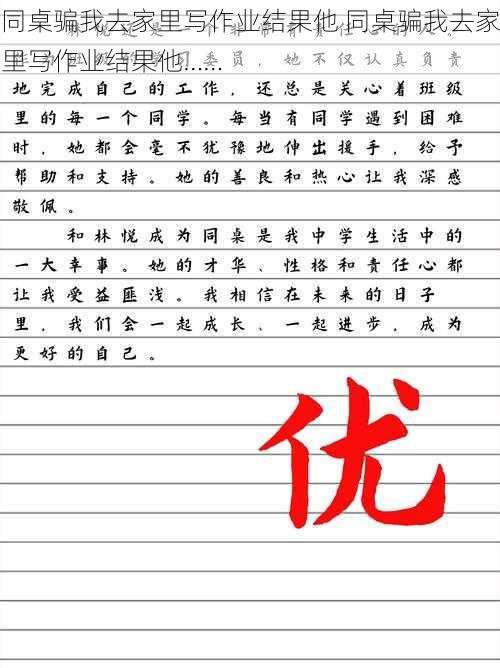 同桌骗我去家里写作业结果他,同桌骗我去家
里写作业结果他......
林悦还是一个非常有责任心的人。
委员，她不仅认真负责
地完成自己的工作，还总是关心着班级
里的每一个同学。每当有同学遇到困难
时，她都会毫不犹豫地伸出援手，给予
帮助和支持。她的善良和热心让我深感
敬佩。
和林悦成为同桌是我中学生活中的
一大幸事。她的才华、性格和责任心都
让我受益匪浅。我相信在未来的日子
里，我们会一起成长、一起进步，成为
更好的自己。
优